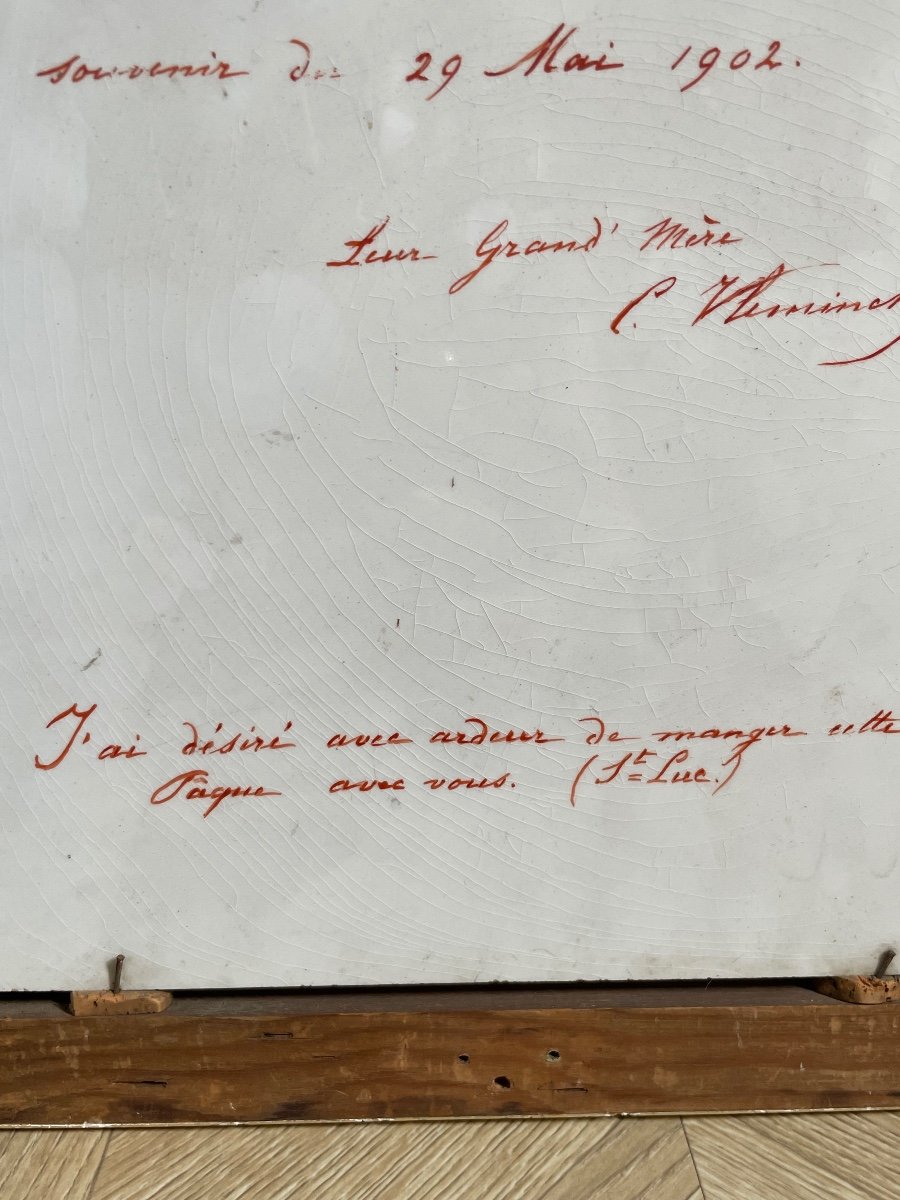 souvenir du 29 Mai 1902.
Leur Grand' Mère
C.
J'ai désiré avec ardeur de manger cette
Pâque avec vous. (St Luc.)